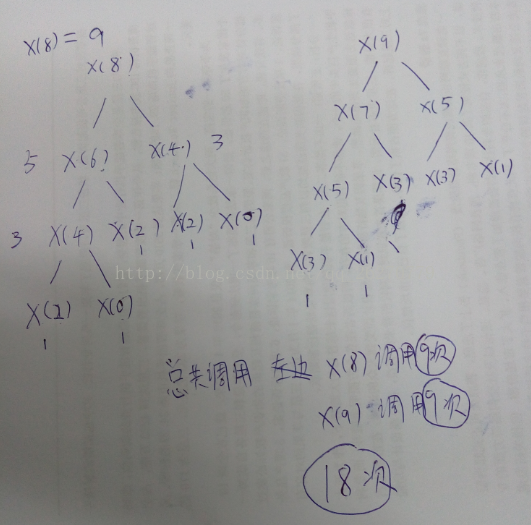 X(8) = 9
X(8)
X(9)
X(7)
X(5)
5
X(6)
X(4)
3
X(5)
X(3)
X(3)
X(1)
3
X(4)
X(2)
X(2)
X(0)
1
1
1
X(3)
X(1)
1
1
X(2)
X(0)
1
1
总共调用
X(8)调用9次
X(9)调用9次
18次